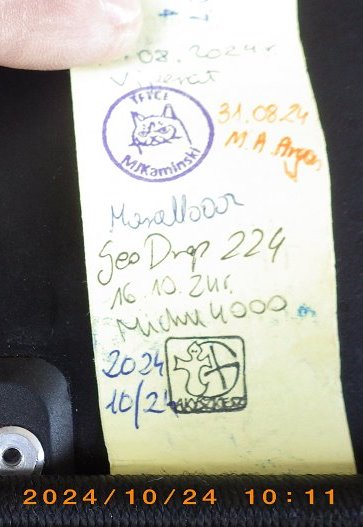 .08.2024r
Viverat
TFTCI
MJKaminski
31.08.24
M.A.Argon
GeoDrop 224
16.10.24r.
Michu4000
2024
10/24
2024/10/24 10:11